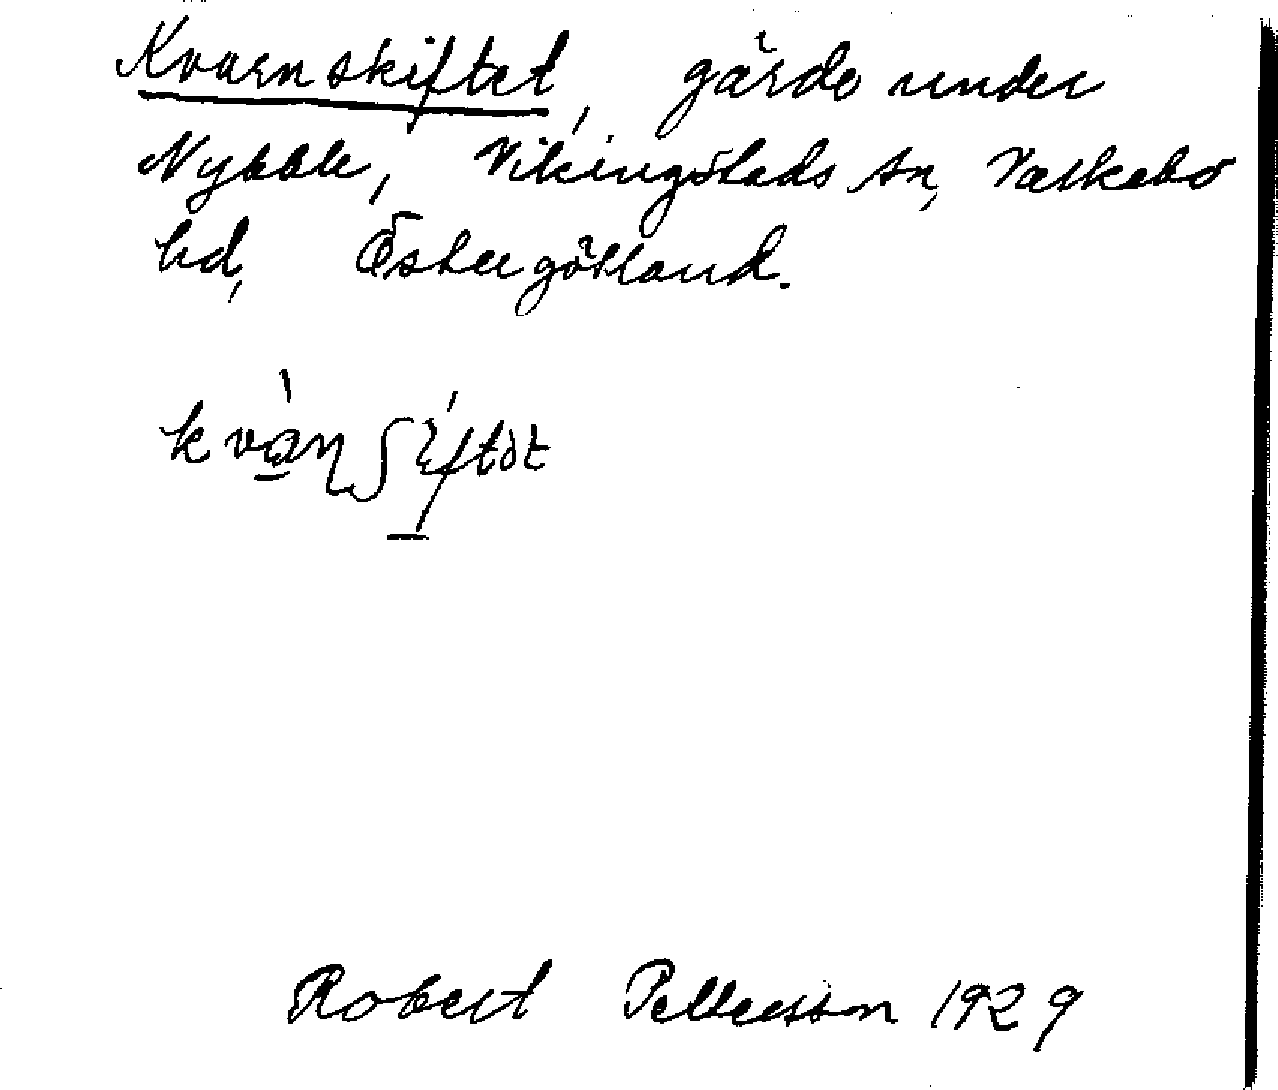 Kvarnskiftet, gärde under
Nybble, Vikingstads sn, Valkebo
hd, Östergötland.
Robert Pettersson 1929